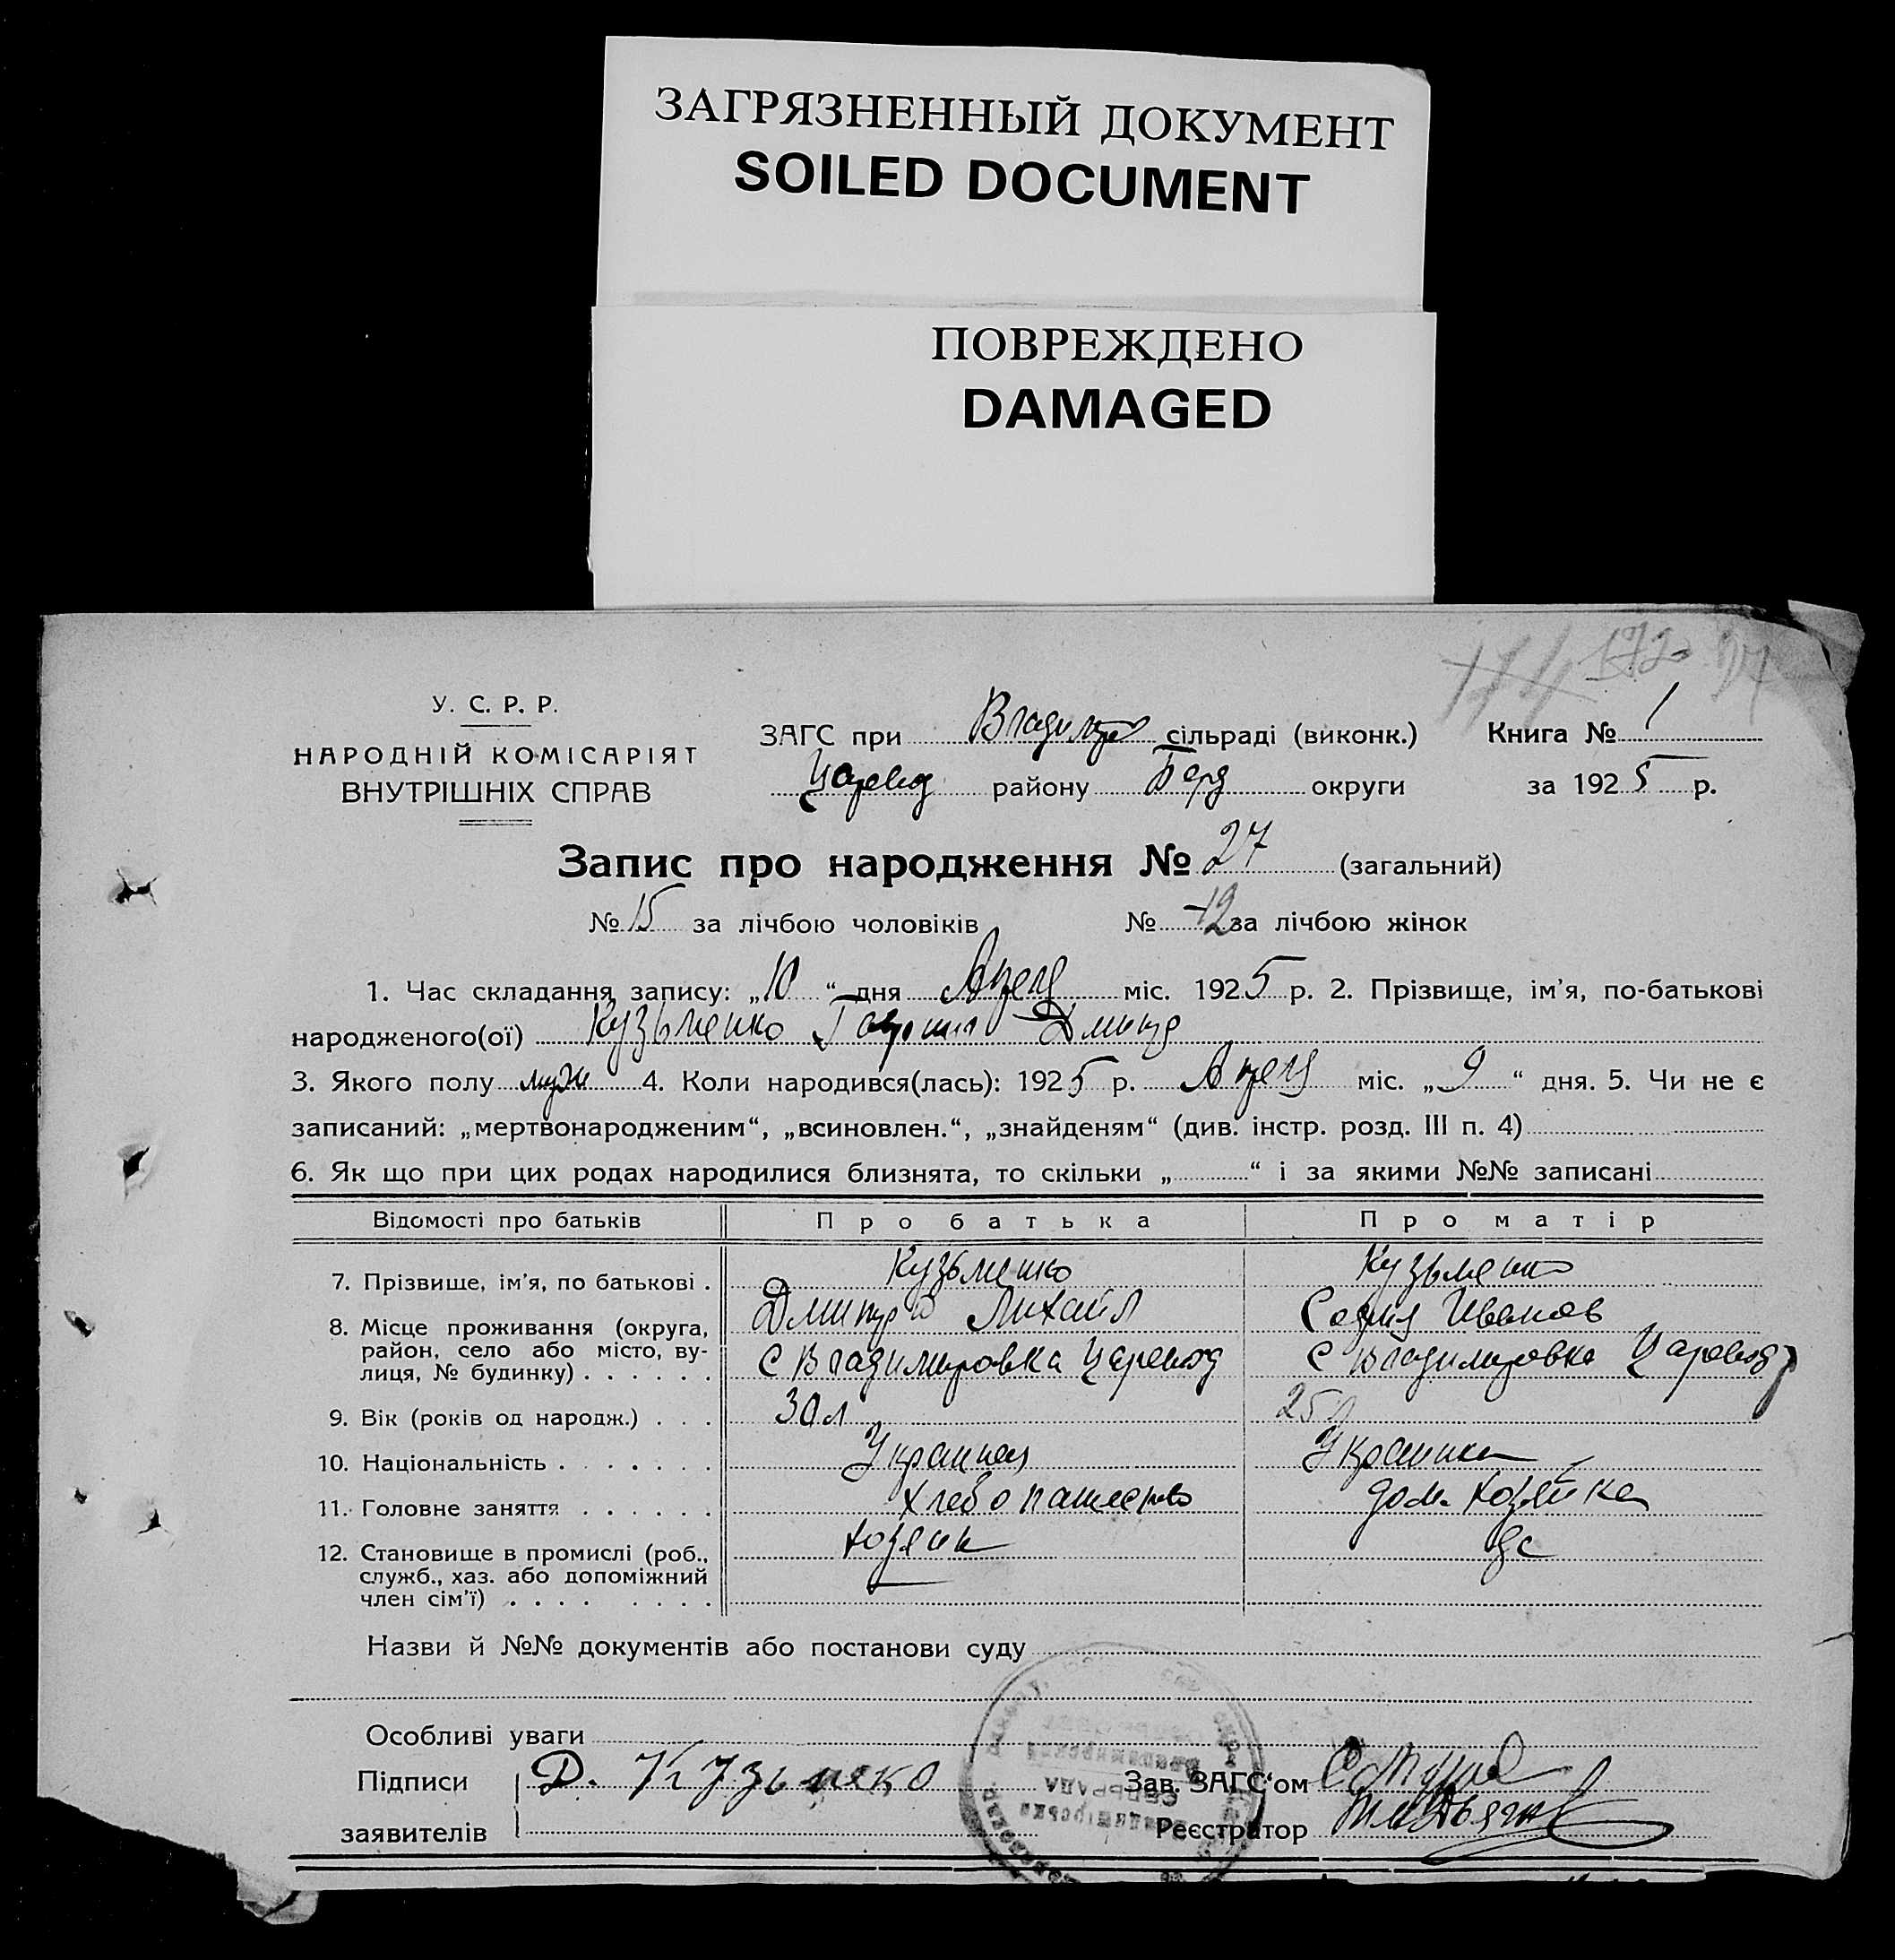 ЗАГРЯЗНЕННЫЙ ДОКУМЕНТ
SOILED DOCUMENT
ПОВРЕЖДЕНО
DAMAGED
172
У. С. Р. Р.
НАРОДНІЙ КОМІСАРІЯТ
ВНУТРІШНІХ СПРАВ
ЗАГС при Владимир сільраді (виконк.) Книга № 1
Царевод району Берд округи за 1925 р.
Запис про народження № 27 (загальний)
№ 15 за лічбою чоловіків № 12 за лічбою жінок
1. Час складання запису: „10“ дня Апреля міс. 1925 р. 2. Прізвище, ім'я, по-батькові
народженого(ої) Кузьменко Дмитр
3. Якого полу муж 4. Коли народився(лась): 1925 р. Апреля міс. „9“ дня. 5. Чи не є
записаний: „мертвонародженим“, „всиновлен.“, „знайденям“ (див. інстр. розд. III п. 4)
6. Як що при цих родах народилися близнята, то скільки „ “ і за якими №№ записані
Відомості про батьків Про батька Про матір
7. Прізвище, ім'я, по батькові . Кузьменко Кузьменко
Дмитрий Михайл София Иванов
8. Місце проживання (округа, район, село або місто, вулиця, № будинку) . . . . . . с Владимировка Царевод с Владимировка Царевод
9. Вік (років од народж.) . . . 30 л 25 л
10. Національність . . . . . . Украинец Украинка
11. Головне заняття . . . . . . Хлебопашество дом. хозяйка
12. Становище в промислі (роб., служб., хаз. або допоміжний член сім'ї) . . . . . . . . хозяин
Назви й №№ документів або постанови суду
Особливі уваги
Підписи Д. Кузьмеко Зав. ЗАГС‘ом
заявителів Реєстратор
СІЛЬРАДА